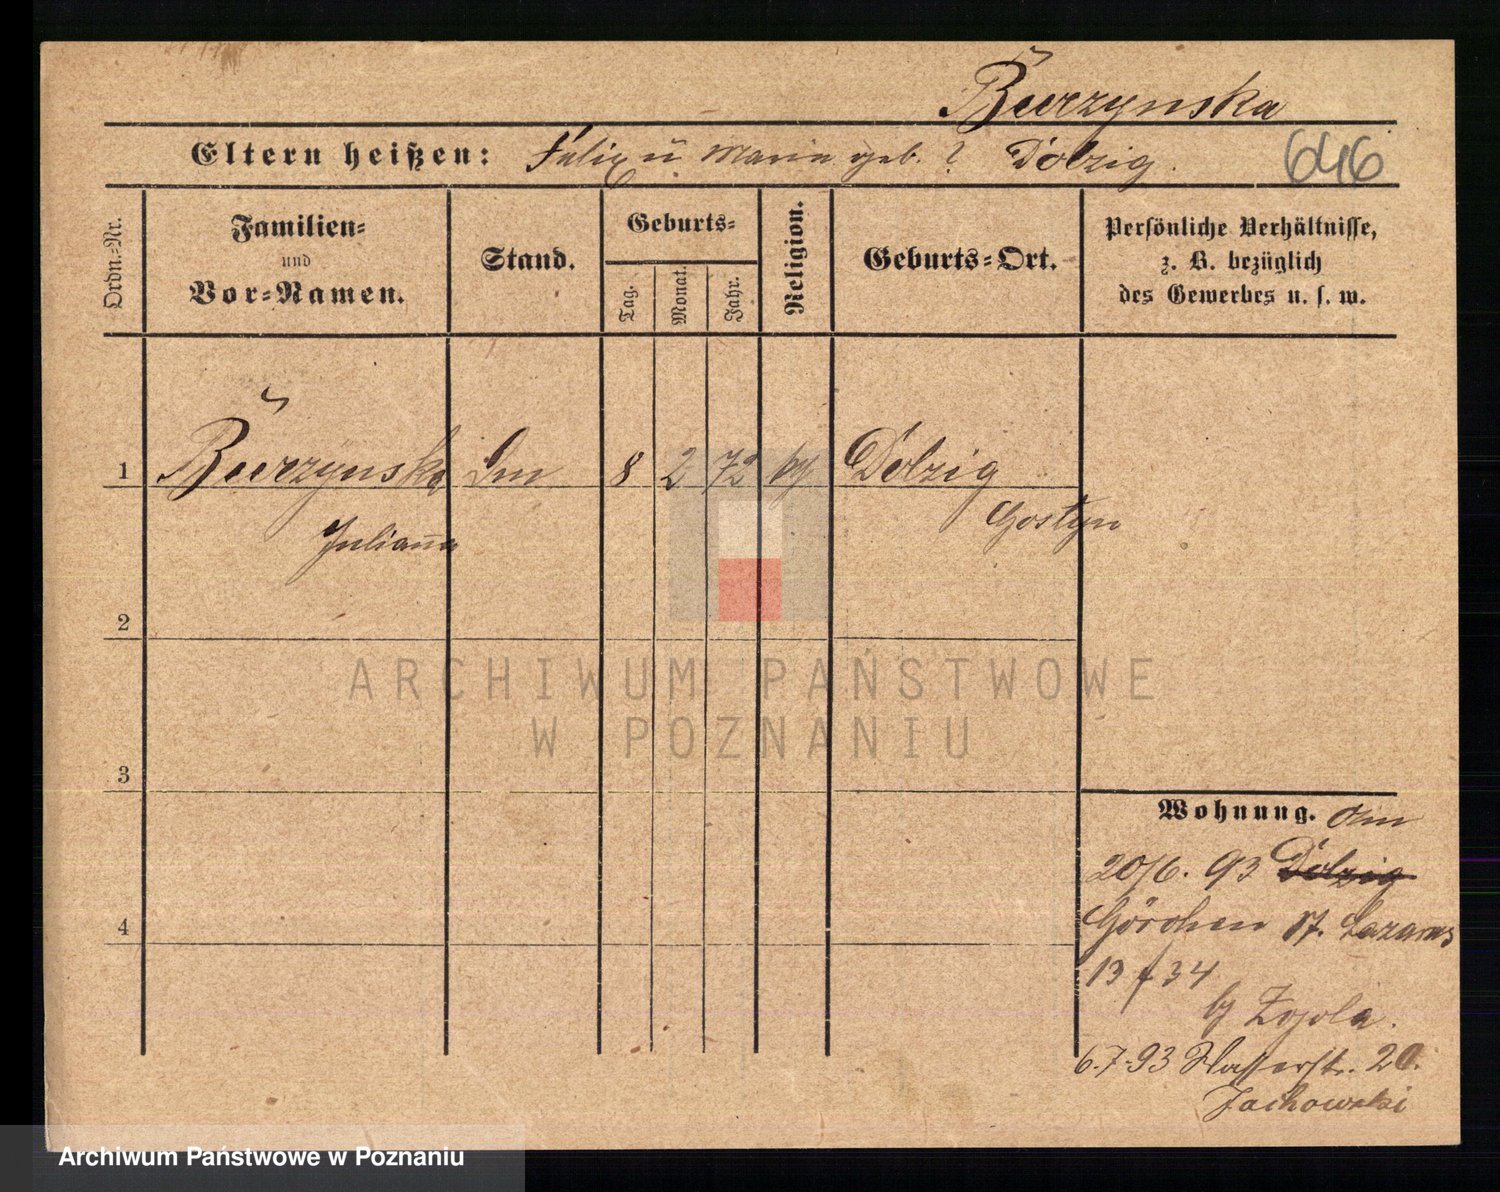 Burzynska
Eltern heißen: Felix u Maria geb. ? Dolzig. 646
Ordn.-Nr. Familien- und Vor-Namen. Stand. Geburts- Tag. Monat. Jahr. Religion. Geburts-Ort. Persönliche Verhältnisse, z. B. bezüglich des Gewerbes u. s. w.
1 Burzynska 8 2 72 Dolzig
Juliana Gostyn
2
ARCHIWUM PAŃSTWOWE
W POZNANIU
3
Wohnung.
20/6. 93 Dolzig
Görchen 17. Lazarus
6.7.93 20.
Archiwum Państwowe w Poznaniu